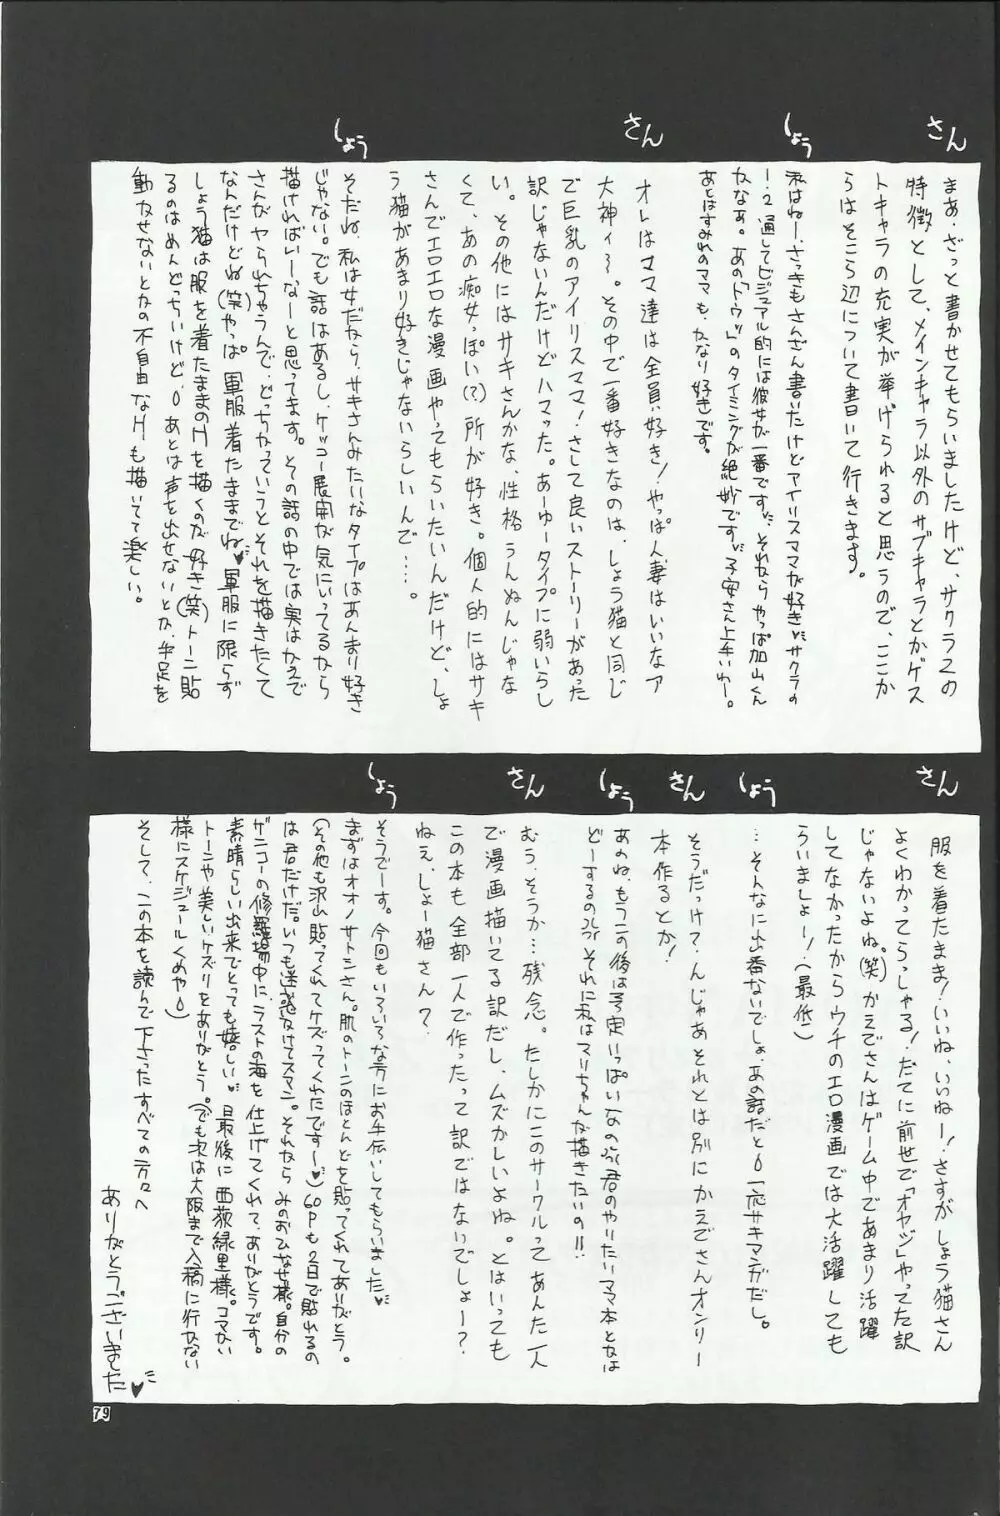 さん
まあ、ざっと書かせてもらいましたけど、サクラ2の
特徴として、メインキャラ以外のサブキャラとかゲス
トキャラの充実が挙げられると思うので、ここか
らはそこら辺について書いて行きます。
しょう
私はね、さっきもさんざん書いたけどアイリスママが好き♥サクラの
1・2通してビジュアル的には彼女が一番です。それからやっぱ加山くん
かなあ。あの「トウッ」のタイミングが絶妙です。子安さん上手いわー。
あとはすみれのママも、かなり好きです。
さん
オレはママ達は全員好き!やっぱ人妻はいいなァ
大神ィ〜。その中で一番好きなのは、しょう猫と同じ
で巨乳のアイリスママ!さして良いストーリーがあった
訳じゃないんだけどハマッた。あーゆータイプに弱いらし
い。その他にはサキさんかな、性格うんぬんじゃな
くて、あの痴女っぽい(?)所が好き。個人的にはサキ
さんでエロエロな漫画やってもらいたいんだけど、しょ
う猫があまり好きじゃないらしいんで…。
しょう
そだね、私は女だから、サキさんみたいなタイプはあんまり好き
じゃない。でも話はあるし、ケッコー展開が気にいってるから
描ければいーなーと思ってます。その話の中では実はかえで
さんがヤられちゃうんで、どっちかっていうとそれを描きたくて
なんだけどね(笑)やっぱ軍服着たままでね♥軍服に限らず
しょう猫は服を着たままのHを描くのが好き(笑)トーン貼
るのはめんどっちいけど。あとは声を出せないとか、手足を
動かせないとかの不自由なHも描いてて楽しい。
さん
服を着たまま!いいね、いいねー!さすがしょう猫さん
よくわかってらっしゃる!だてに前世で「オヤジ」やってた訳
じゃないよね。(笑)かえでさんはゲーム中であまり活躍
してなかったからウチのエロ漫画では大活躍しても
らいましょー!(最低)
しょう
…そんなに出番ないでしょ、あの話だと。一応サキマンガだし。
さん
そうだっけ?んじゃあそれとは別にかえでさんオンリー
本作るとか!
しょう
あのね、もうこの後は予定いっぱいなの。君のやりたいママ本とかは
どーするの。それに私はマリちゃんが描きたいの!!
さん
むう、そうか…残念。たしかにこのサークルってあんた一人
で漫画描いてる訳だし、ムズかしいよね。とはいっても
この本も全部一人で作ったって訳ではないでしょー?
ねぇ、しょー猫さん?
しょう
そうでーす。今回もいろいろな方にお手伝いしてもらいました♥
まずはオオノサトシさん。肌のトーンのほとんどを貼ってくれてありがとう。
(その他も沢山貼ってくれてケズってくれたですー♥)60Pも2日で貼れるの
は君だけだ。いつも迷惑かけてスマン。それから みのおひなせ様。自分の
ゲンコーの修羅場中に、ラストの海を仕上げてくれて、ありがとうです。
素晴らしい出来でとっても嬉しい♥最後に西荻緑里様。コマかい
トーンや美しいケズリをありがとう。(でも次は大阪まで入稿に行かない
様にスケジュールくめや)
そして、この本を読んで下さったすべての方々へ
ありがとうございました♥
79